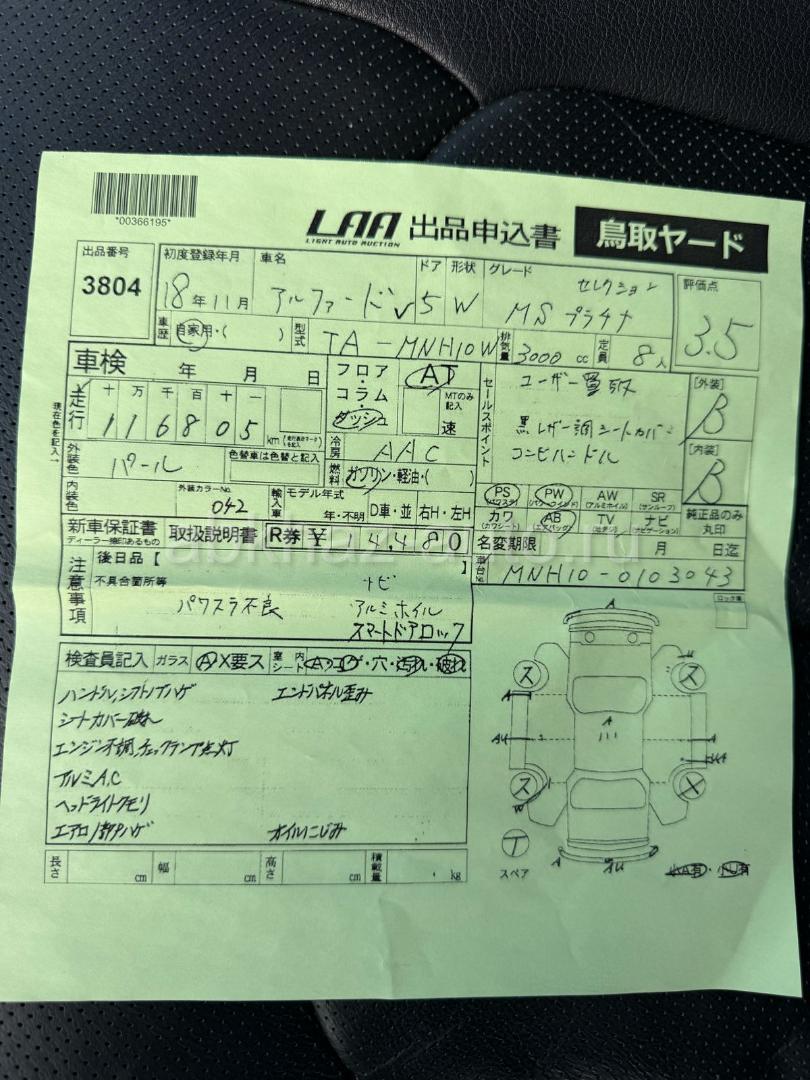 *00366195*
LAA 出品申込書 鳥取ヤード
LIGHT AUTO AUCTION
出品番号 3804
初度登録年月 18年11月
車名 アルファードV
ドア 5
形状 W
グレード MS プラチナ セレクション
評価点 3.5
車歴 自家用・( )
型式 TA-MNH10W
排気量 3000 cc
定員 8人
車検 年 月 日
フロア・コラム・ダッシュ
AT
MTのみ記入 速
セールスポイント
ユーザー買取
黒レザー調シートカバー
コンビハンドル
[外装] B
[内装] B
走行 十万千百十一
116805 km
現在色を記入→
外装色 パール
色替車は色替と記入
冷房 AAC
燃料 ガソリン・軽油・( )
内装色
外装カラーNo. 042
輸入車 モデル年式 年・不明 D車・並 右H・左H
PS (パワステ) PW (パワーウインド) AW (アルミホイル) SR (サンルーフ)
カワ (カワシート) AB (エアバッグ) TV (地デジ) ナビ (ナビゲーション)
純正品のみ丸印
新車保証書 取扱説明書 R券 ¥14,480
ディーラー捺印あるもの
名変期限 月 日迄
後日品【 】
車台No. MNH10-0103043
注意事項
不具合箇所等
ナビ
パワスラ不良 アルミホイル
スマートドアロック
検査員記入 ガラス A X要ス 室内シート A・コゲ・穴・汚れ・破れ
ハンドル,シフトノブハゲ エンドパネル歪み
シートカバー破れ
エンジン不調,チェックランプ点灯
アルミA,C
ヘッドライトクモリ
エアロ/割P/ハゲ オイルにじみ
長さ cm 幅 cm 高さ cm 積載量 kg
A
ス ス
A A
ス X
W
T
スペア
A
小A有・小U有